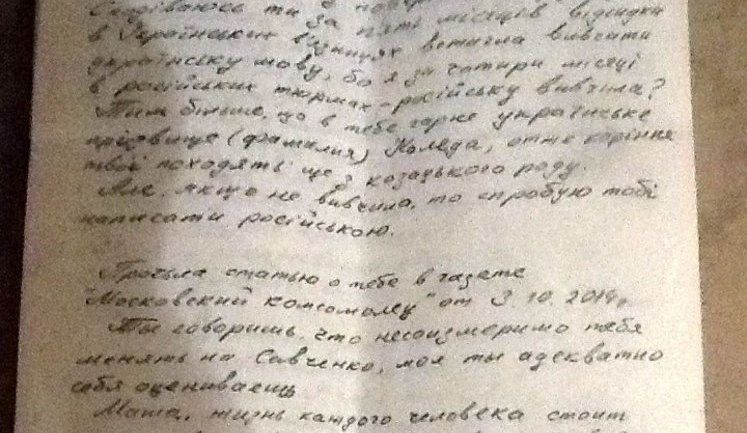 Сподіваюсь ти за п'ять місяців відсидки
в Українських в'язницях встигла вивчити
українську мову, бо я за чотири місяці
в російських тюрмах - російську вивчила?
Тим більше, що в тебе гарне українське
прізвище (фамилия) Коледа, отже коріння
твої походять ще з козацького роду.
Але, якщо не вивчила, то спробую тобі
написати російською.
Прочла статью о тебе в газете
"Московский комсомолец" от 3.10.2014г.
Ты говоришь, что несоизмеримо тебя
менять на Савченко, мол ты адекватно
себя оцениваешь
Маша, жизнь каждого человека стоит